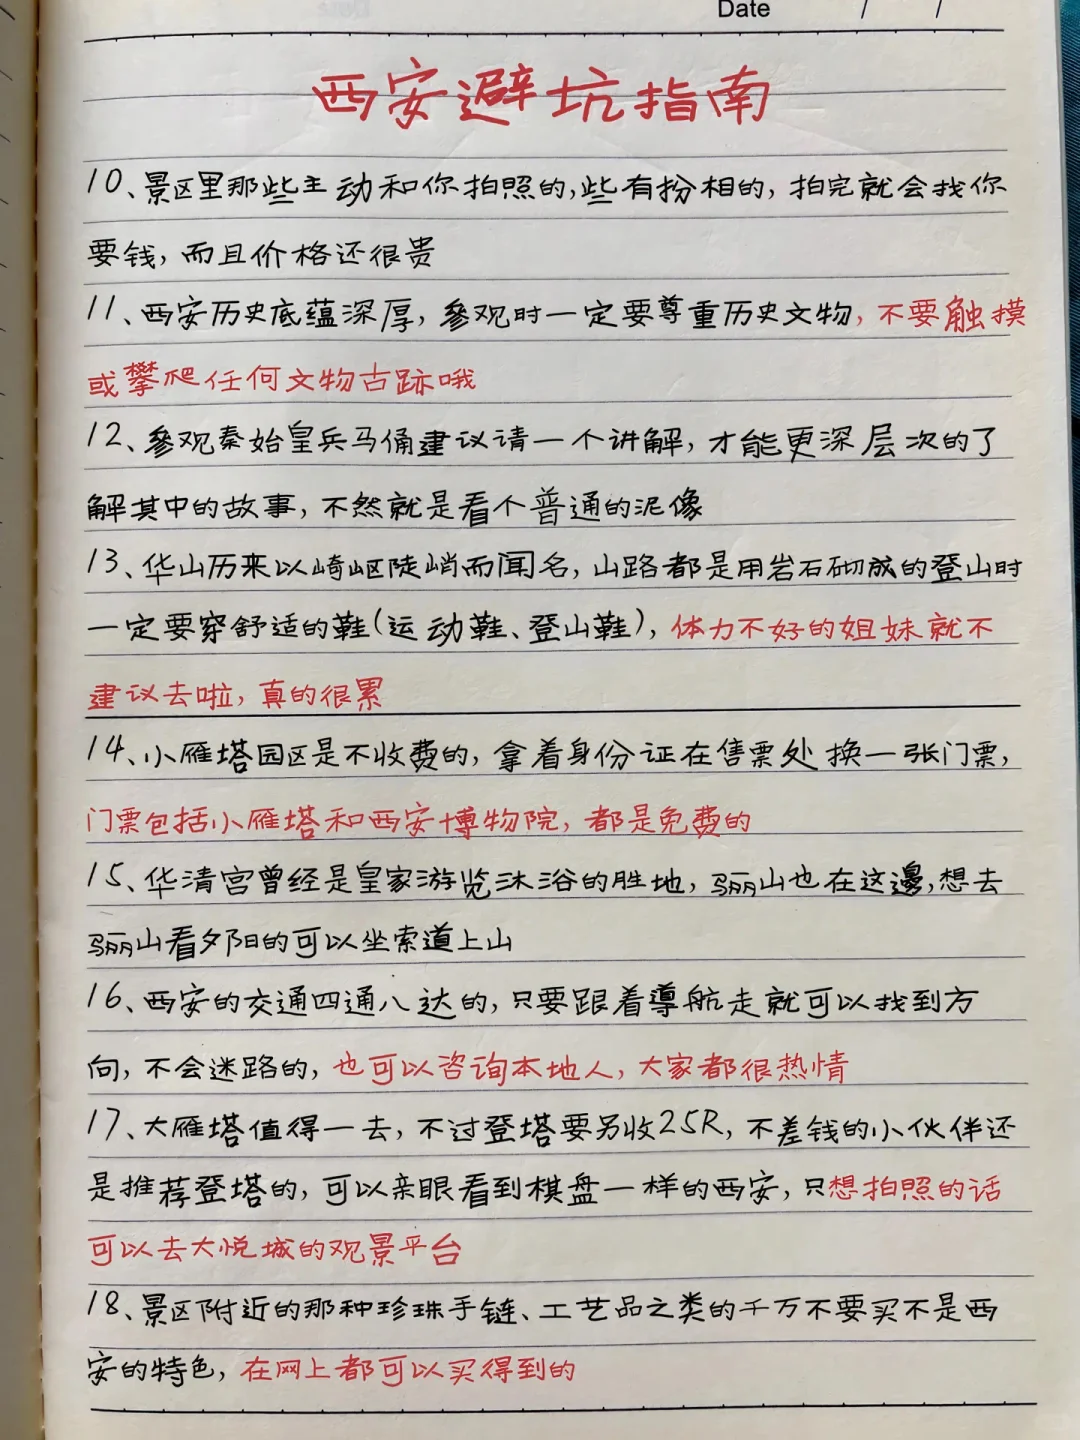 Date / /
西安避坑指南
10、景区里那些主动和你拍照的,些有扮相的,拍完就会找你
要钱,而且价格还很贵
11、西安历史底蕴深厚,参观时一定要尊重历史文物,不要触摸
或攀爬任何文物古跡哦
12、參观秦始皇兵马俑建议请一个讲解,才能更深层次的了
解其中的故事,不然就是看个普通的泥像
13、华山历来以崎岖陡峭而闻名,山路都是用岩石砌成的登山时
一定要穿舒适的鞋(运动鞋、登山鞋),体力不好的姐妹就不
建议去啦,真的很累
14、小雁塔园区是不收费的,拿着身份证在售票处换一张门票,
门票包括小雁塔和西安博物院,都是免费的
15、华清宫曾经是皇家游览沐浴的胜地,骊山也在这邊,想去
骊山看夕阳的可以坐索道上山
16、西安的交通四通八达的,只要跟着導航走就可以找到方
向,不会迷路的,也可以咨询本地人,大家都很热情
17、大雁塔值得一去,不过登塔要另收25R,不差钱的小伙伴还
是推荐登塔的,可以亲眼看到棋盘一样的西安,只想拍照的话
可以去大悦城的观景平台
18、景区附近的那种珍珠手链、工艺品之类的千万不要买不是西
安的特色,在网上都可以买得到的